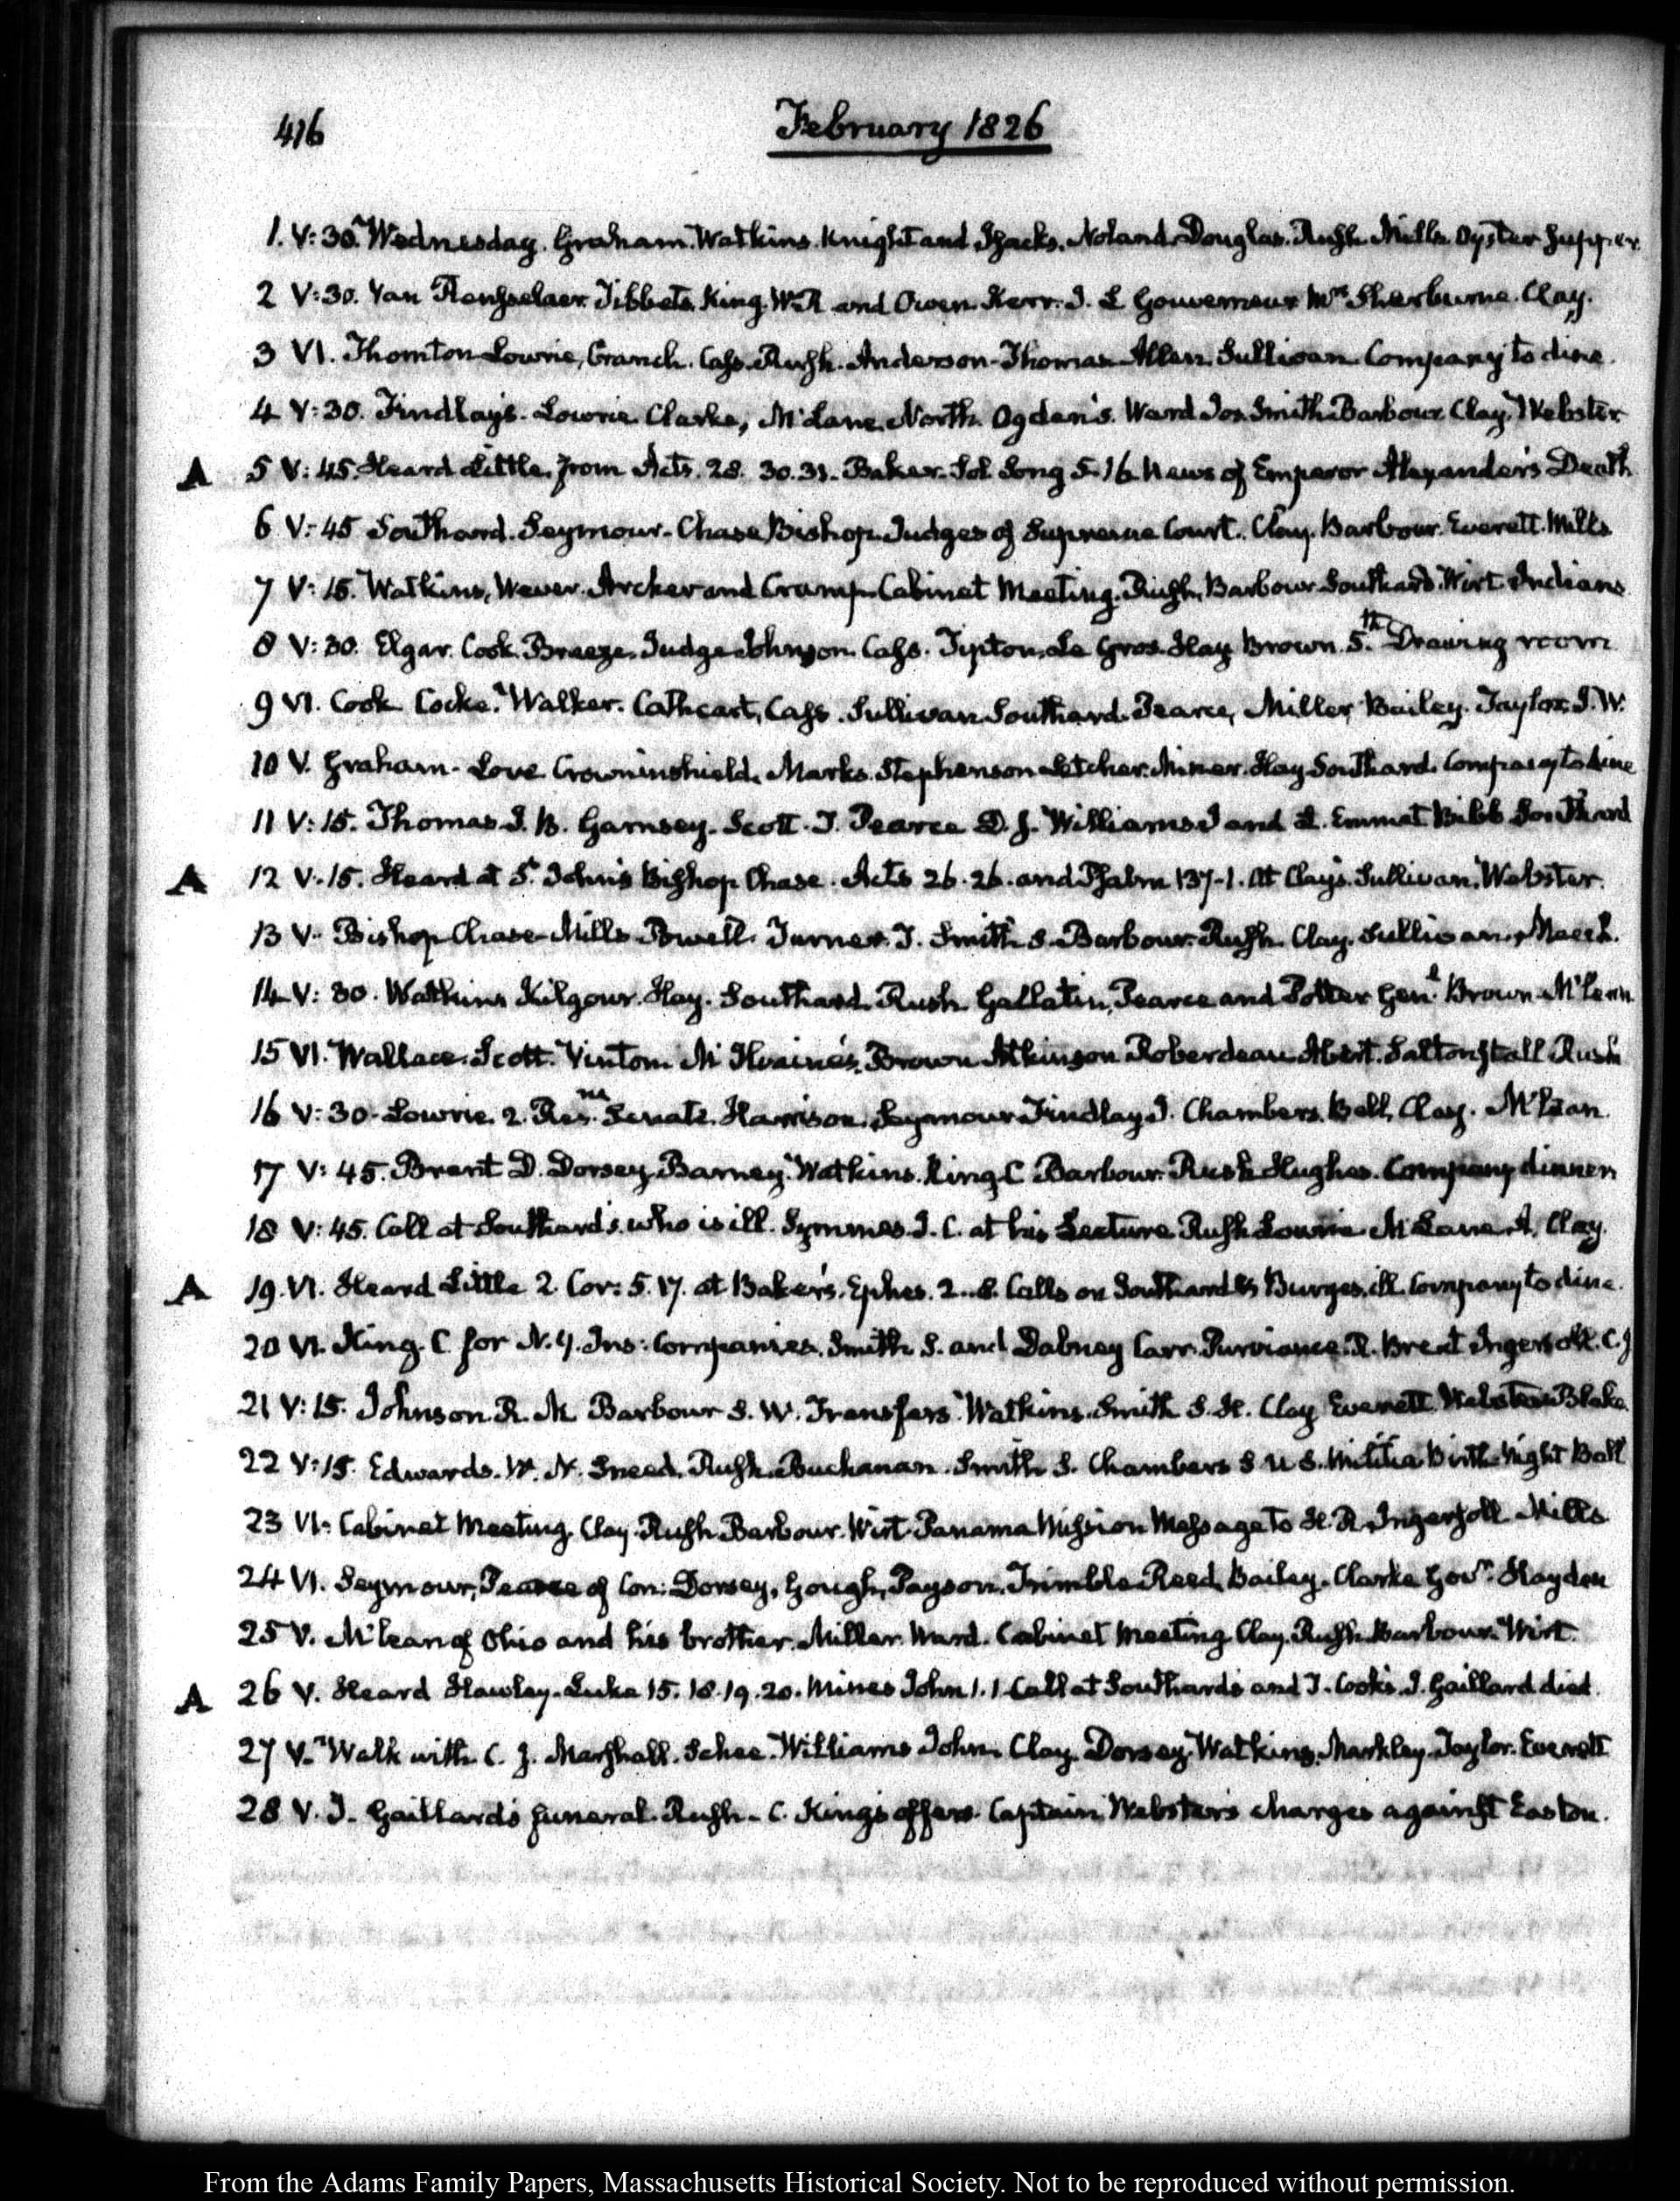 416
February 1826
1. V:30. Wednesday. Graham. Watkins. Knight and Noland. Douglas. Rush. Mills. Oyster supper
2 V:30. Van Rensselaer. Tibbets. King. W. R and Owen. Kerr. I. L Gouverneur Mrs Sherburne. Clay.
3 VI. Thornton Lowrie, Cranch. Cass. Rush. Anderson. Thomas. Allen. Sullivan. Company to dine.
4 V:30. Findlay's. Lowrie Clarke, McLane. North. Ogden's. Ward Jos. Smith. Barbour. Clay. Webster
A 5 V:45. Heard Little, from Acts. 28. 30.31. Baker. Sol. Song 5.16 News of Emperor Alexander's Death
6 V:45 Southard. Seymour. Chase Bishop. Judges of Supreme Court. Clay. Barbour. Everett. Mills
7 V:15. Watkins, Wever. Archer and Crump. Cabinet Meeting. Rush, Barbour Southard Wirt. Indians
8 V:30. Elgar. Cook. Breeze, Judge Johnson. Cass. Tipton. Le Gros. Hay Brown. 5.th Drawing room
9 VI. Cook Cocke. Walker. Cathcart, Cass. Sullivan. Southard. Pearce, Miller, Bailey. Taylor. J. W.
10 V. Graham. Love Crowninshield. Marks. Stephenson Letcher. Miner. Hay Southard. Company to dine
11 V:15. Thomas J. B. Garnsey. Scott. J. Pearce D. J. Williams J and L. Emmet Bibb Southard
A 12 V.15. Heard at St Johns Bishop Chase. Acts 26.26. and Psalm 137-1. At Clay's. Sullivan. Webster.
13 V. Bishop Chase. Mills Powell. Turner. J. Smith S. Barbour. Rush. Clay. Sullivan.
14 V:30. Watkins Kilgour. Hay. Southard. Rush. Gallatin, Pearce and Potter Genl Brown. McLean
15 VI. Wallace. Scott. Vinton. McIlvaine's. Brown Atkinson Roberdeau Abert. Saltonstall Rush
16 V:30. Lowrie. 2. Resns Senate. Harrison. Seymour Findlay J. Chambers. Bell, Clay. McLean.
17 V:45. Brent D. Dorsey. Barney. Watkins. King C Barbour. Rush Hughes. Company dinner
18 V:45. Call at Southard's. who is ill. Symmes. J. C. at his Lecture. Rush Lowrie McLane A. Clay.
A 19. VI. Heard Little 2. Cor: 5.17. at Baker's. Ephes. 2..8. Calls on Southard & Burges, ill. Company to dine.
20 VI. King. C for N.Y. Ins: Companies. Smith S. and Dabney Carr. Purviance. R. Brent Ingersoll. C. J
21 V:15. Johnson R. M Barbour S. W. Transfers. Watkins. Smith S. H. Clay Everett. Webster Blake.
22 V:15. Edwards. W. N. Sneed. Rush. Buchanan. Smith S. Chambers S U S. Militia Birth Night Ball
23 VI. Cabinet Meeting. Clay. Rush. Barbour. Wirt. Panama Mission Message to H. R. Ingersoll Mills
24 VI. Seymour, Pearce of Con: Dorsey, Gough, Payson. Trimble Reed. Bailey. Clarke Govr. Hayden
25 V. McLean of Ohio and his brother. Miller. Ward. Cabinet Meeting. Clay. Rush. Barbour. Wirt.
A 26 V. Heard Hawley. Luke 15. 18.19.20. Mines John 1.1 Call at Southard's and J. Cook's. J. Gaillard died.
27 V. Walk with C. J. Marshall. Schee. Williams John. Clay. Dorsey. Watkins. Markley. Taylor. Everett
28 V. J. Gaillard's funeral. Rush. C. King's offers. Captain Webster's charges against Easton.
From the Adams Family Papers, Massachusetts Historical Society. Not to be reproduced without permission.